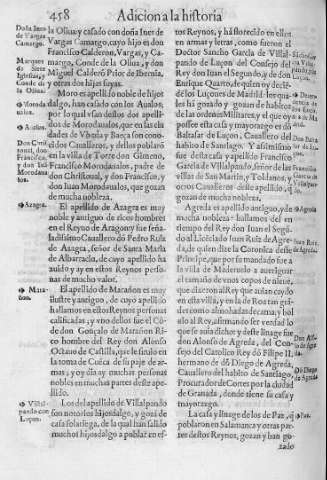 458 Adicion a la historia
Doña Ines
de Vargas
Camargo.
la Oliua, y casado con doña Ines de
Vargas Camargo, cuyo hijo es don
Francisco Calderon, Vargas, y Camargo, Conde de la Oliua, y don
Marques
de Siete
Iglesias,
Conde de
la Oliua.
Miguel Calderõ Prior de Ibernia,
y otras dos hijas suyas.
Moro es apellido noble de hijos
dalgo, han casado con los Aualos,
por lo qual vsan destos dos apellidos de Morodaualos, que en las ciudades de Vbeda y Baeça son conocidos Caualleros, y dellos poblarõ
en la villa de Torre don Gimeno,
Francisco Morodaualos, padre de
don Christoual, y don Francisco, y
don Iuan Morodaualos, que gozan
de mucha nobleza.
Aualos.
Azagra
El apellido de Azagra es muy
noble y antiguo de ricos hombres
en el Reyno de Aragon y fue señaladissimo Cauallero do Pedro Ruiz
de Azagra, señor de Santa Maria
de Albarracin, de cuyo apellido ha
auido y ay en estos Reynos personas de mucho valor.
Marañon.
El apellido de Marañon es muy
ilustre y antiguo, de cuyo apellido
hallamos en estos Reynos personas
calificadas, y vno dellos fue el Cõde don Gonçalo de Marañon Rico hombre del Rey don Alonso
Octauo de Castilla, que se fundo en
la toma de Cueca de su paje de armas, y oy dia ay muchas personas
nobles en muchas partes deste apellido.
Villalpando con
Luçon.
Los del apellido de Villalpando
son notorios hijosdalgo, y gozã de
casa solariega, de la qual han salido
muchos hijosdalgo a poblar en estos Reynos, y ha florecido en ellos
en armas y letras, como fueron el
Doctor Sancho Garcia de Villalpando, de Luçon del Consejo del
Rey don Iuan el Segundo, y de don
Enrique Quarto, de quien deciende
de los Luçones de Madrid: los quales hã gozado y gozan de habitos
de las ordenes Militares, y el que oy
possee esta casa y mayorazgo es dõ
Baltasar de Luçon, Cauallero del
habito de Santiago. Y assimismo
fue desta casa y apellido Francisco
Garcia de Villalpando, señor de las
villas de San Martin, y Toldanos, y
otros Caualleros deste apellido, que
gozan de mucha nobleza.
Agreda
Agreda es apellido antiguo, y de
mucha nobleza: hallamos del en
tiempo del Rey don Iuan el Segundo, al Licenciado Iuan Ruiz de Agreda, de quien dize la Coronica deste
Principe, que por su mandado fue a
la villa de Maderuelo a aueriguar
el tamaño de vnos copos de nieue,
que dixeron al Rey que auian caydo
en esta villa, y en la de Roa tan grandes como almohadas de cama; y boluio al Rey, afirmando ser verdad lo
que le auia dicho: y deste linage fue
don Alonso de Agreda, del Consejo del Catolico Rey dõ Filipe II.
hermano de dõ Diego de Agreda,
Cauallero del habito de Santiago,
Procurador de Cortes por la ciudad
de Granada, donde tiene su casa y
mayorazgo.
Dõ Diego
de Agreda
La casa y linage de los de Paz, q
poblaron en Salamanca y otras partes destos Reynos, gozan y han go-
zado
Paz.